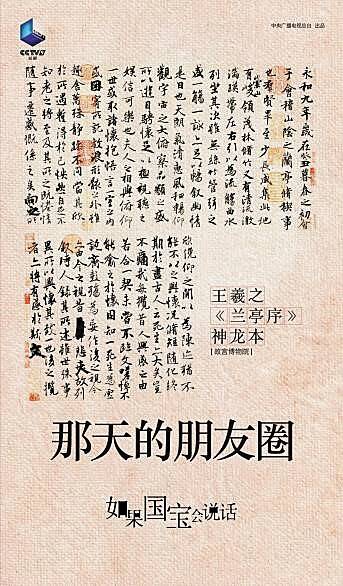 CCTV9
纪录
中央广播电视总台 出品
永和九年歲在癸丑暮春之初會
于會稽山陰之蘭亭脩稧事
也羣賢畢至少長咸集此地
有崇山峻領茂林脩竹又有清流激
湍暎帶左右引以為流觴曲水
列坐其次雖無絲竹管弦之
盛一觴一詠亦足以暢敘幽情
是日也天朗氣清惠風和暢仰
觀宇宙之大俯察品類之盛
所以遊目騁懷足以極視聽之
娛信可樂也夫人之相與俯仰
一世或取諸懷抱悟言一室之內
或因寄所託放浪形骸之外雖
趣舍萬殊靜躁不同當其欣
於所遇蹔得於己怏然自足不
知老之將至及其所之既惓情
隨事遷感慨係之矣向之所
欣俛仰之閒以為陳迹猶不
能不以之興懷況脩短隨化終
期於盡古人云死生亦大矣豈
不痛哉每攬昔人興感之由
若合一契未嘗不臨文嗟悼不
能喻之於懷固知一死生為虛
誕齊彭殤為妄作後之視今
亦由今之視昔悲夫故列
敘時人錄其所述雖世殊事
異所以興懷其致一也後之攬
者亦將有感於斯文
王羲之
《兰亭序》
神龙本
|故宫博物院|
那天的朋友圈
如果国宝会说话